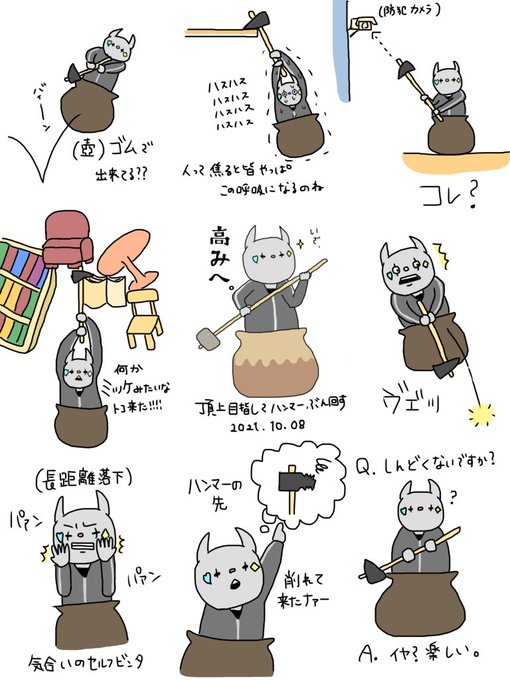 びょーん
(壺)ゴムで
出来てる??
ハスハス
ハスハス
ハスハス
ハスハス
人って焦ると皆やっぱ。
この呼吸になるのね
(防犯カメラ)
コレ?
何か
ミッケみたいな
トコ来た!!!!
高みへ。
いざ、
頂上目指してハンマーぶん回す
2021.10.08
ヴェッ
(長距離落下)
パァン
パァン
気合いのセルフビンタ
ハンマーの
先
削れて
来たナァー
Q.しんどくないですか?
?
A.イヤ?楽しい。